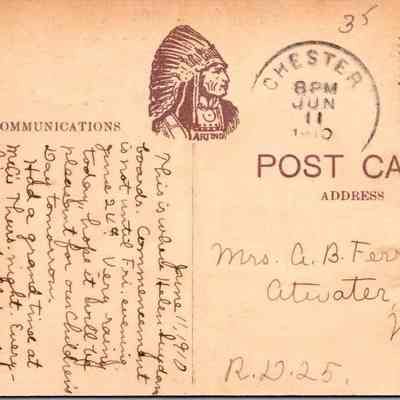 35
CHESTER
8PM
JUN
11
1910
COMMUNICATIONS
POST CA
ADDRESS
June 11, 1910
This is where Helen
boards. Commencement
is not until Fri. evening
June 24th. Very rainy
today, hope it will be
pleasant for our Children's
Day tomorrow.
Had a grand time at
Thurs. night. Every-
Mrs. A. B. Ferr
Atwater,
R.D. 25.